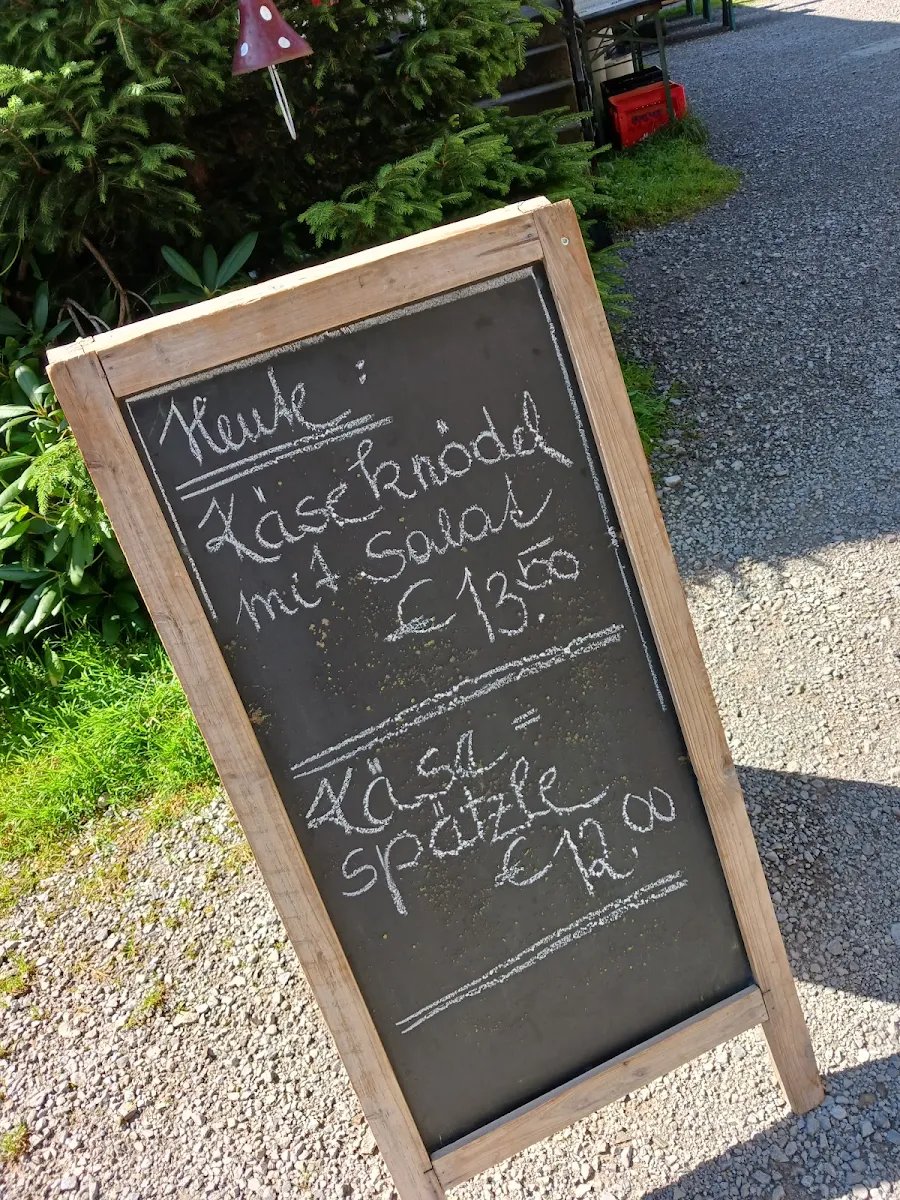 Heute :
Käseknödel
mit Salat
€ 13.50
Käse -
spätzle
€ 12,00